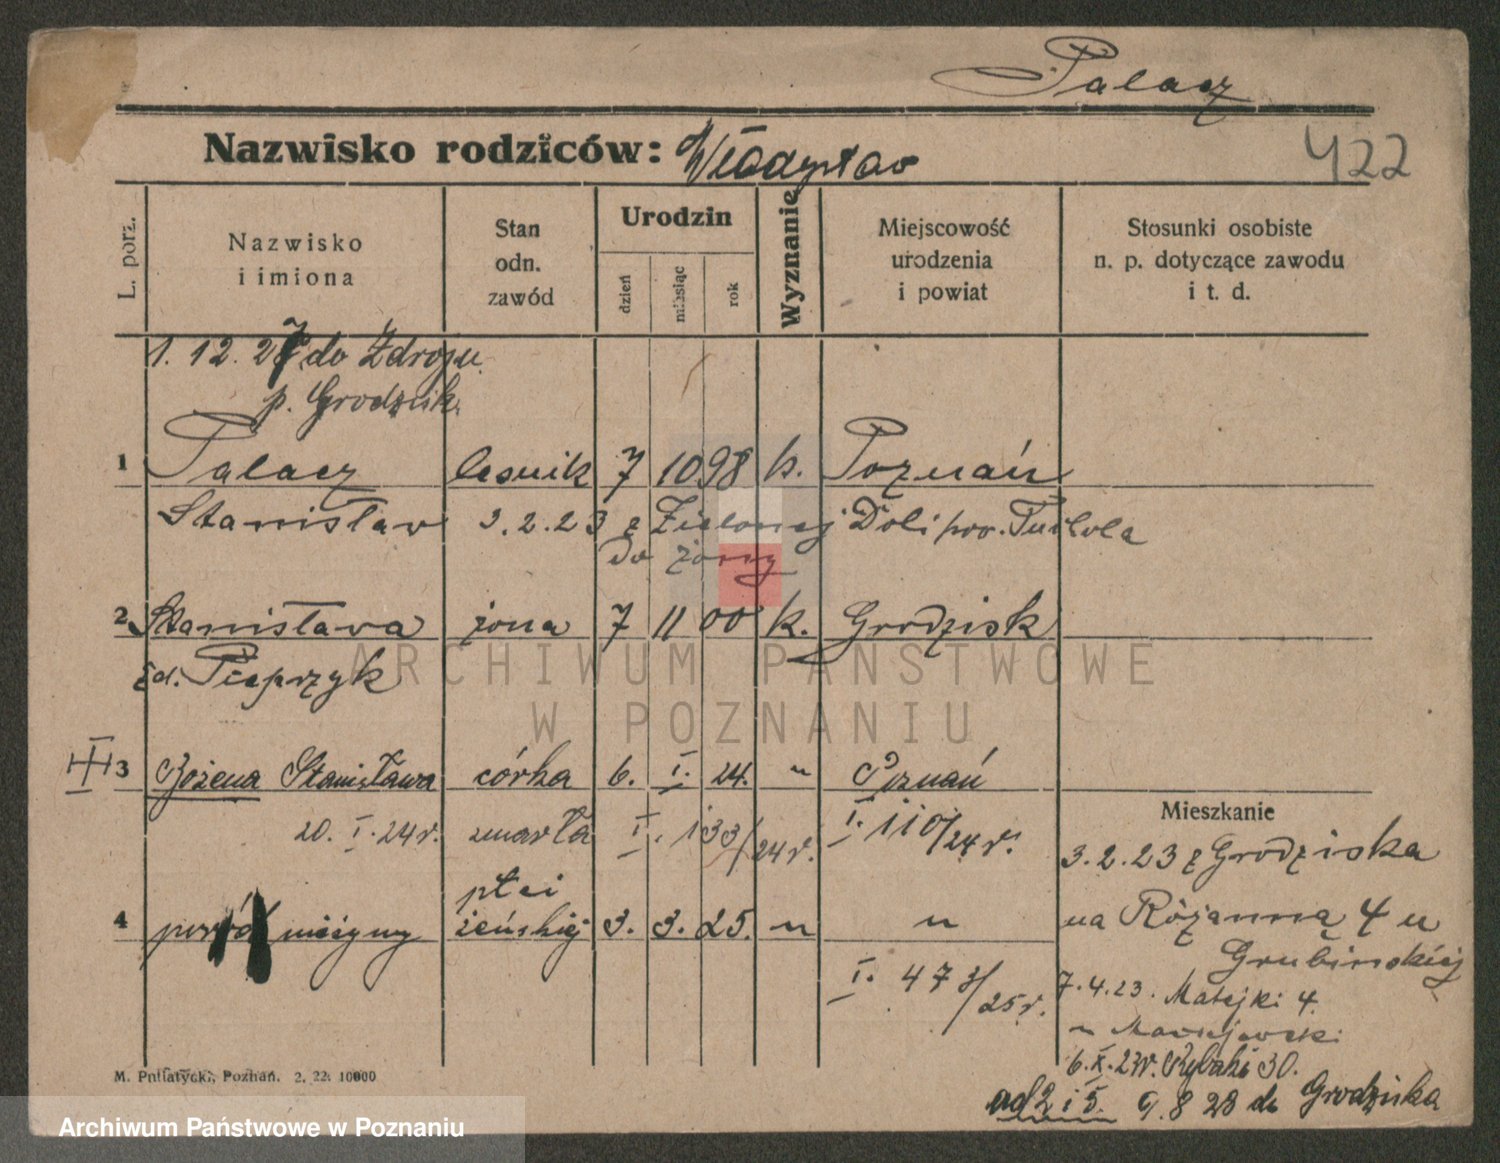 Palacz
Nazwisko rodziców: Władysław
422
L. porz.
Nazwisko i imiona
Stan odn. zawód
Urodzin
dzień
miesiąc
rok
Wyznanie
Miejscowość urodzenia i powiat
Stosunki osobiste n. p. dotyczące zawodu i t. d.
1. 12. 27 do Zdroju
p. Grodzisk
1 Palacz leśnik 7 10 98 k. Poznań
Stanisław 3.2.23 z Zielonej Doli pow. Tuchola
do żony
2 Stanisława żona 7 11 00 k. Grodzisk
zd. Pieprzyk
ARCHIWUM PAŃSTWOWE
W POZNANIU
3 Bożena Stanisława córka 6. I. 24. " Poznań
20. I. 24 r. zmarła I. 133/24 r. I. 110/24 r.
Mieszkanie
3.2.23 z Grodziska
płci
4 poród nieżywy żeńskiej 3. 3. 25. " "
na Różanną 4 u
Grubińskiej
I. 473/25 r.
7.4.23. Matejki 4.
u Maciejewski
6.X.23 r. Rybaki 30.
ad 2 i 5. 9.8 28 do Grodziska
M. Putiatycki, Poznań. 2. 22. 10000
Archiwum Państwowe w Poznaniu